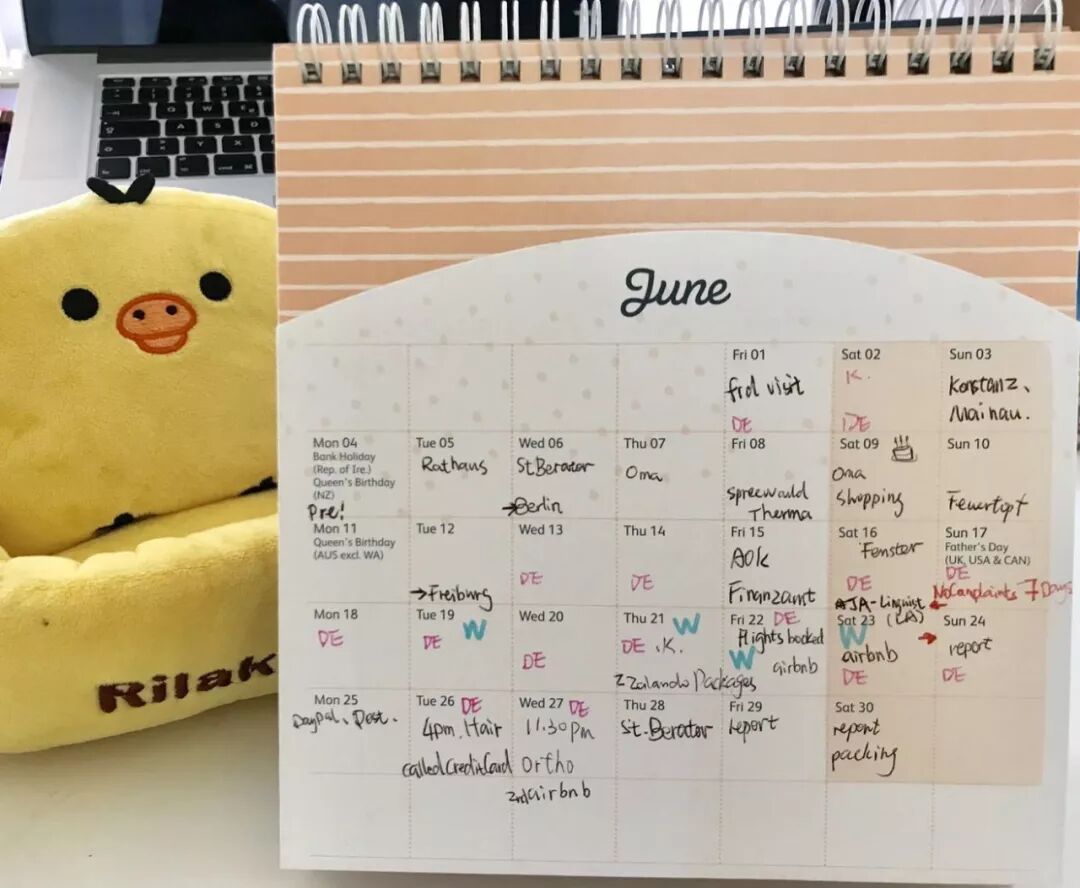 June
Fri 01
frd visit
DE
Sat 02
K.
DE
Sun 03
Konstanz、
Mainau.
Mon 04
Bank Holiday
(Rep. of Ire.)
Queen's Birthday
(NZ)
Pre!
Tue 05
Rathaus
Wed 06
St.Berater
→Berlin
Thu 07
Oma
Fri 08
spreewald
Therma
Sat 09
Oma
shopping
Sun 10
Feuertopf
Mon 11
Queen's Birthday
(AUS excl. WA)
Tue 12
→Freiburg
Wed 13
DE
Thu 14
DE
Fri 15
AOK
Finanzamt
Sat 16
Fenster
DE
AJA-Linguist
(LA)
Sun 17
Father's Day
(UK, USA & CAN)
DE
No Complaints 7 Days
Mon 18
DE
Tue 19
W
DE
Wed 20
DE
Thu 21
W
DE .K.
2 Zalando Packages
Fri 22
DE
flights booked
W
airbnb
Sat 23
W
airbnb
DE
Sun 24
report
DE
Mon 25
Tue 26
DE
4pm.Hair
called Credit Card
Wed 27
DE
11.30pm
Ortho
2nd airbnb
Thu 28
St.Berater
Fri 29
report
Sat 30
report
packing
Rilak